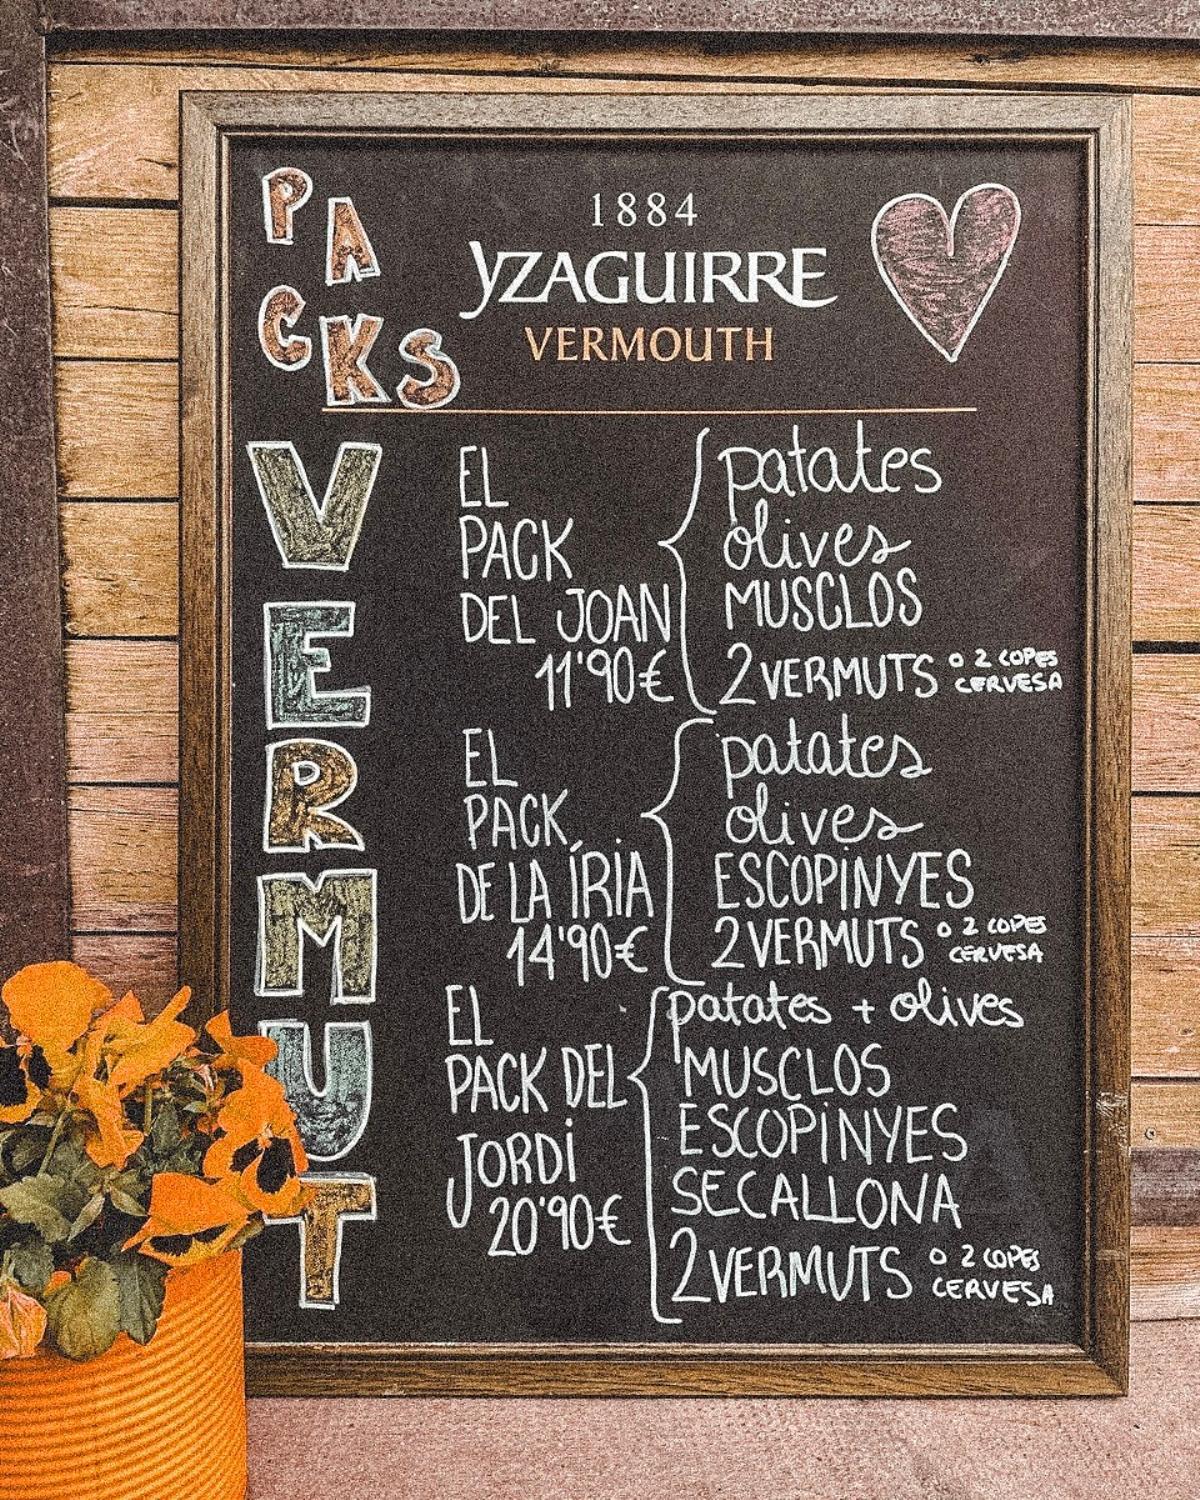 PACKS
VERMUT
1884
YZAGUIRRE
VERMOUTH
EL
PACK
DEL JOAN
11'90€
patates
olives
MUSCLOS
2 VERMUTS O 2 COPES
CERVESA
EL
PACK
DE LA ÍRIA
14'90€
patates
olives
ESCOPINYES
2 VERMUTS O 2 COPES
CERVESA
EL
PACK DEL
JORDI
20'90€
patates + olives
MUSCLOS
ESCOPINYES
SECALLONA
2 VERMUTS O 2 COPES
CERVESA